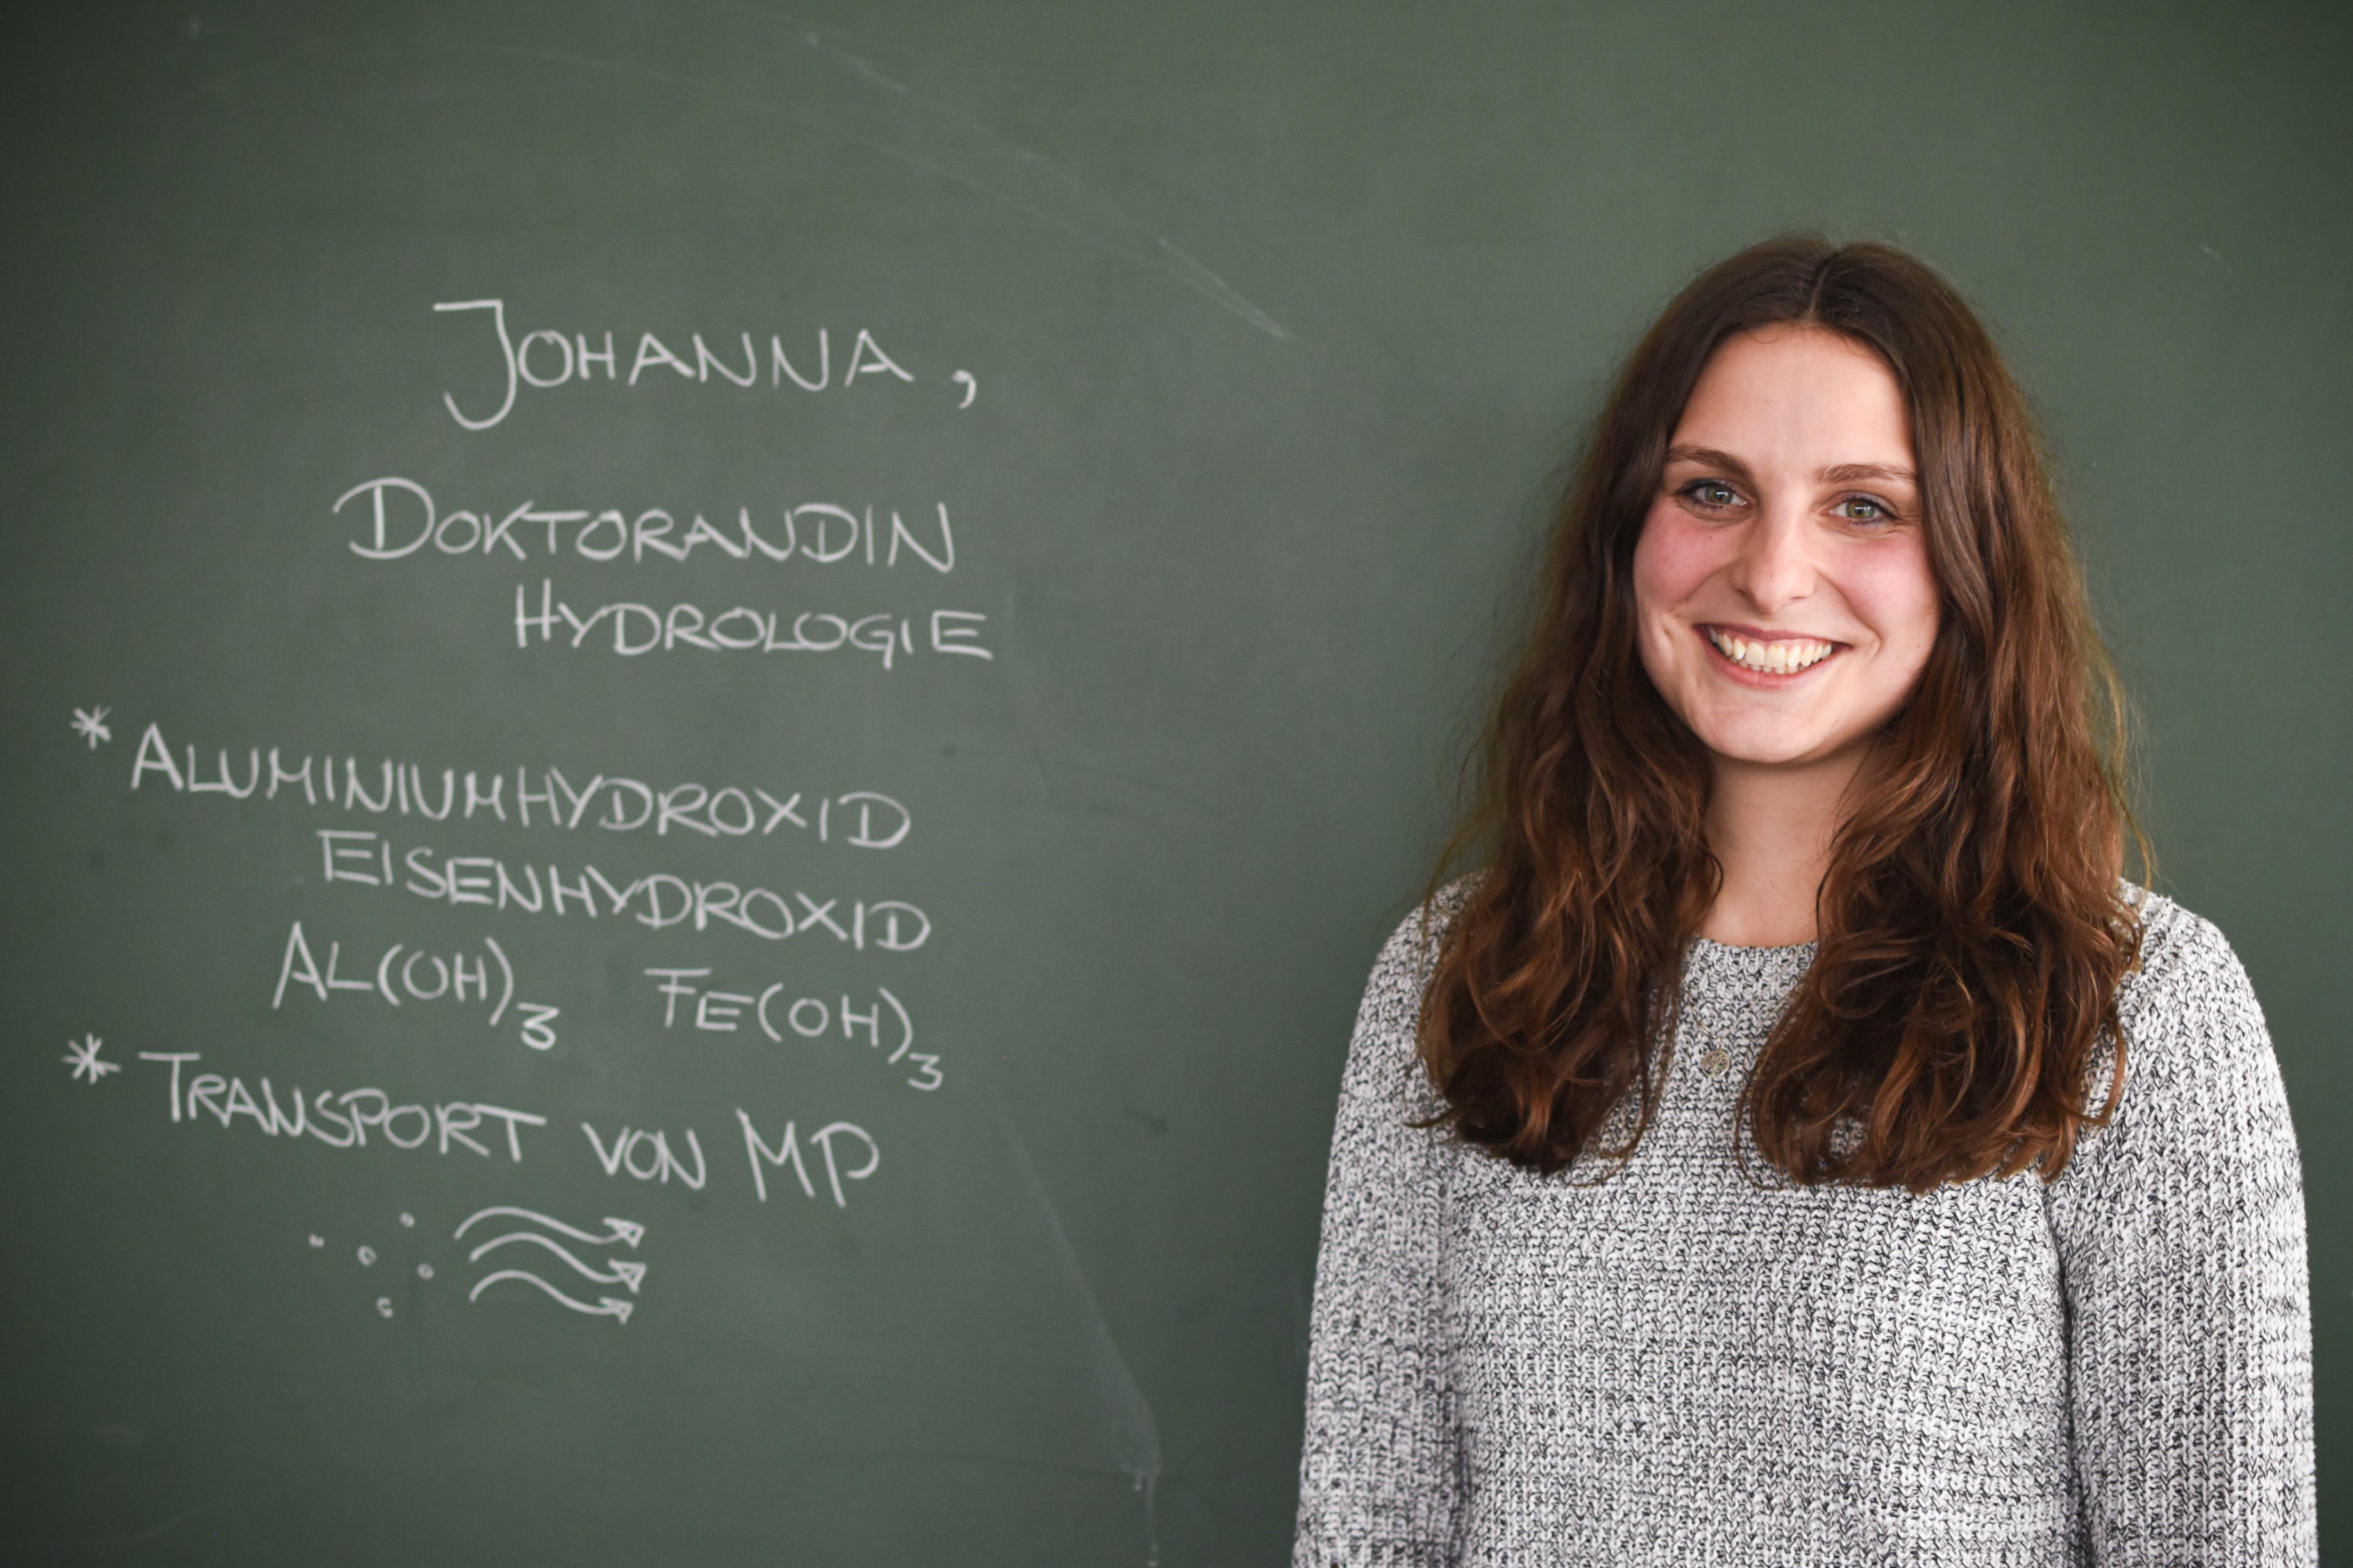 JOHANNA,
DOKTORANDIN
HYDROLOGIE
* ALUMINIUMHYDROXID
EISENHYDROXID
AL(OH)₃ FE(OH)₃
* TRANSPORT VON MP